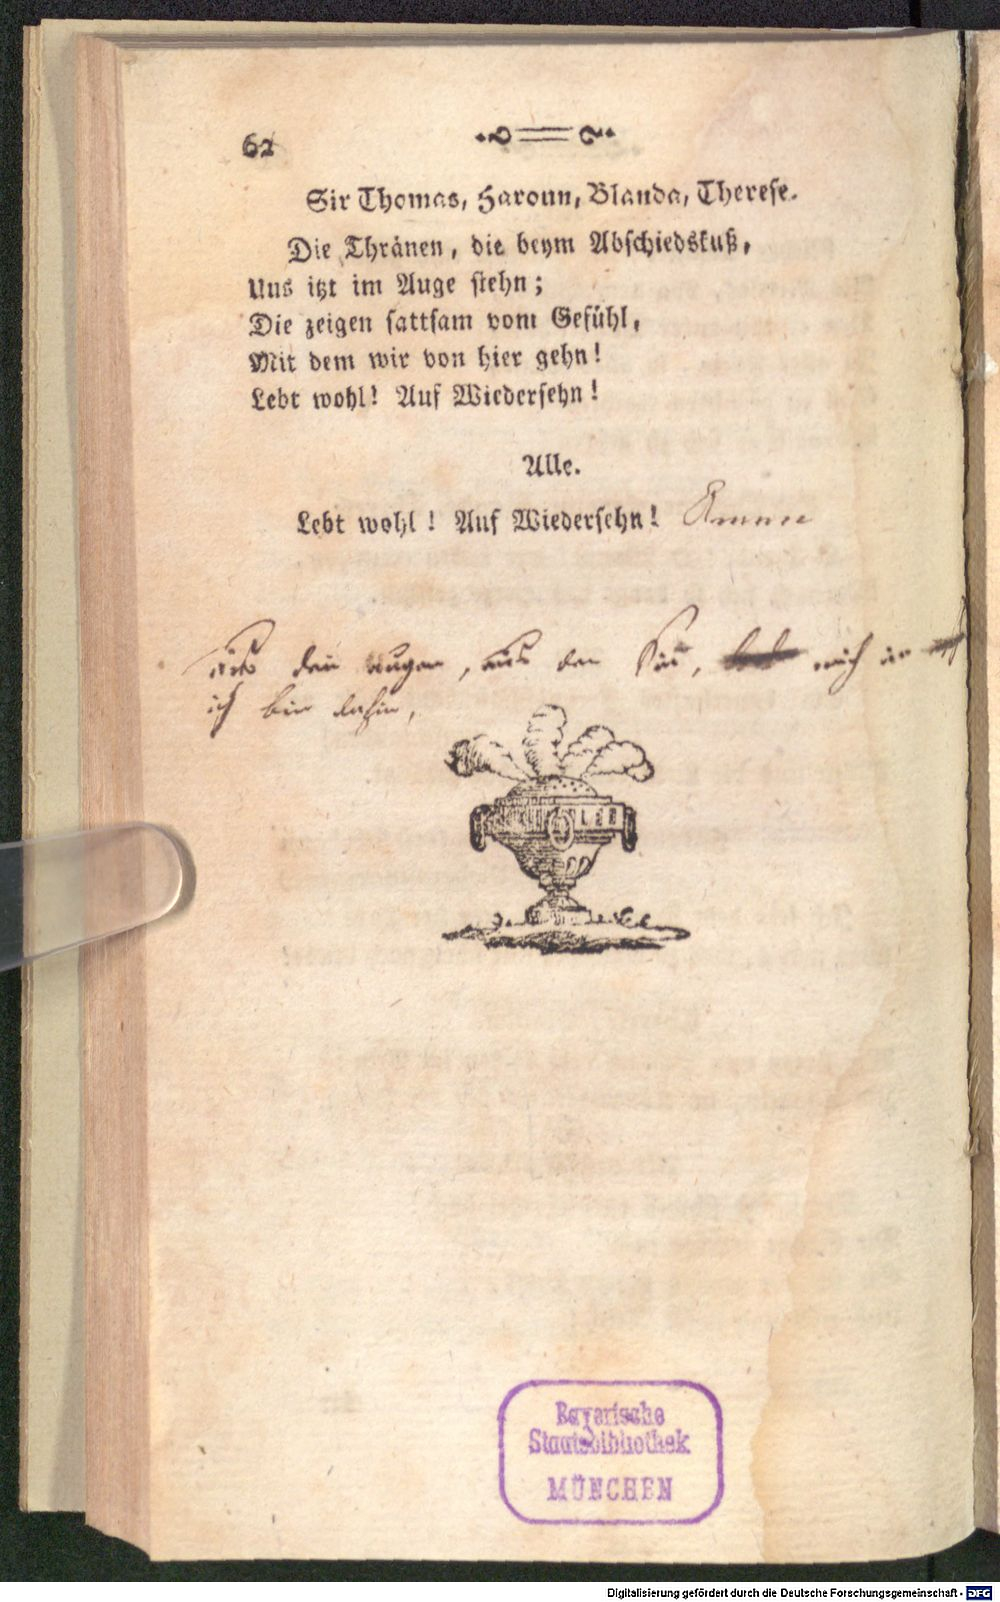 62
Sir Thomas, Haroun, Blanda, Therese.
Die Thränen, die beym Abschiedskuß,
Uns itzt im Auge stehn;
Die zeigen sattsam vom Gefühl,
Mit dem wir von hier gehn!
Lebt wohl! Auf Wiedersehn!
Alle.
Lebt wohl! Auf Wiedersehn!
aus den augen, aus den Sin, mich
ich bin dahin,
Bayerische
Staatsbibliothek
MÜNCHEN
Digitalisierung gefördert durch die Deutsche Forschungsgemeinschaft - DFG